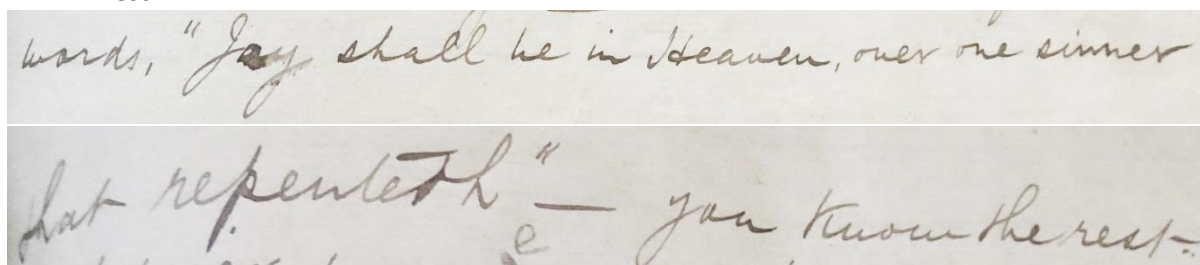 words, "Joy shall be in Heaven, over one sinner
that repenteth" — you know the rest.